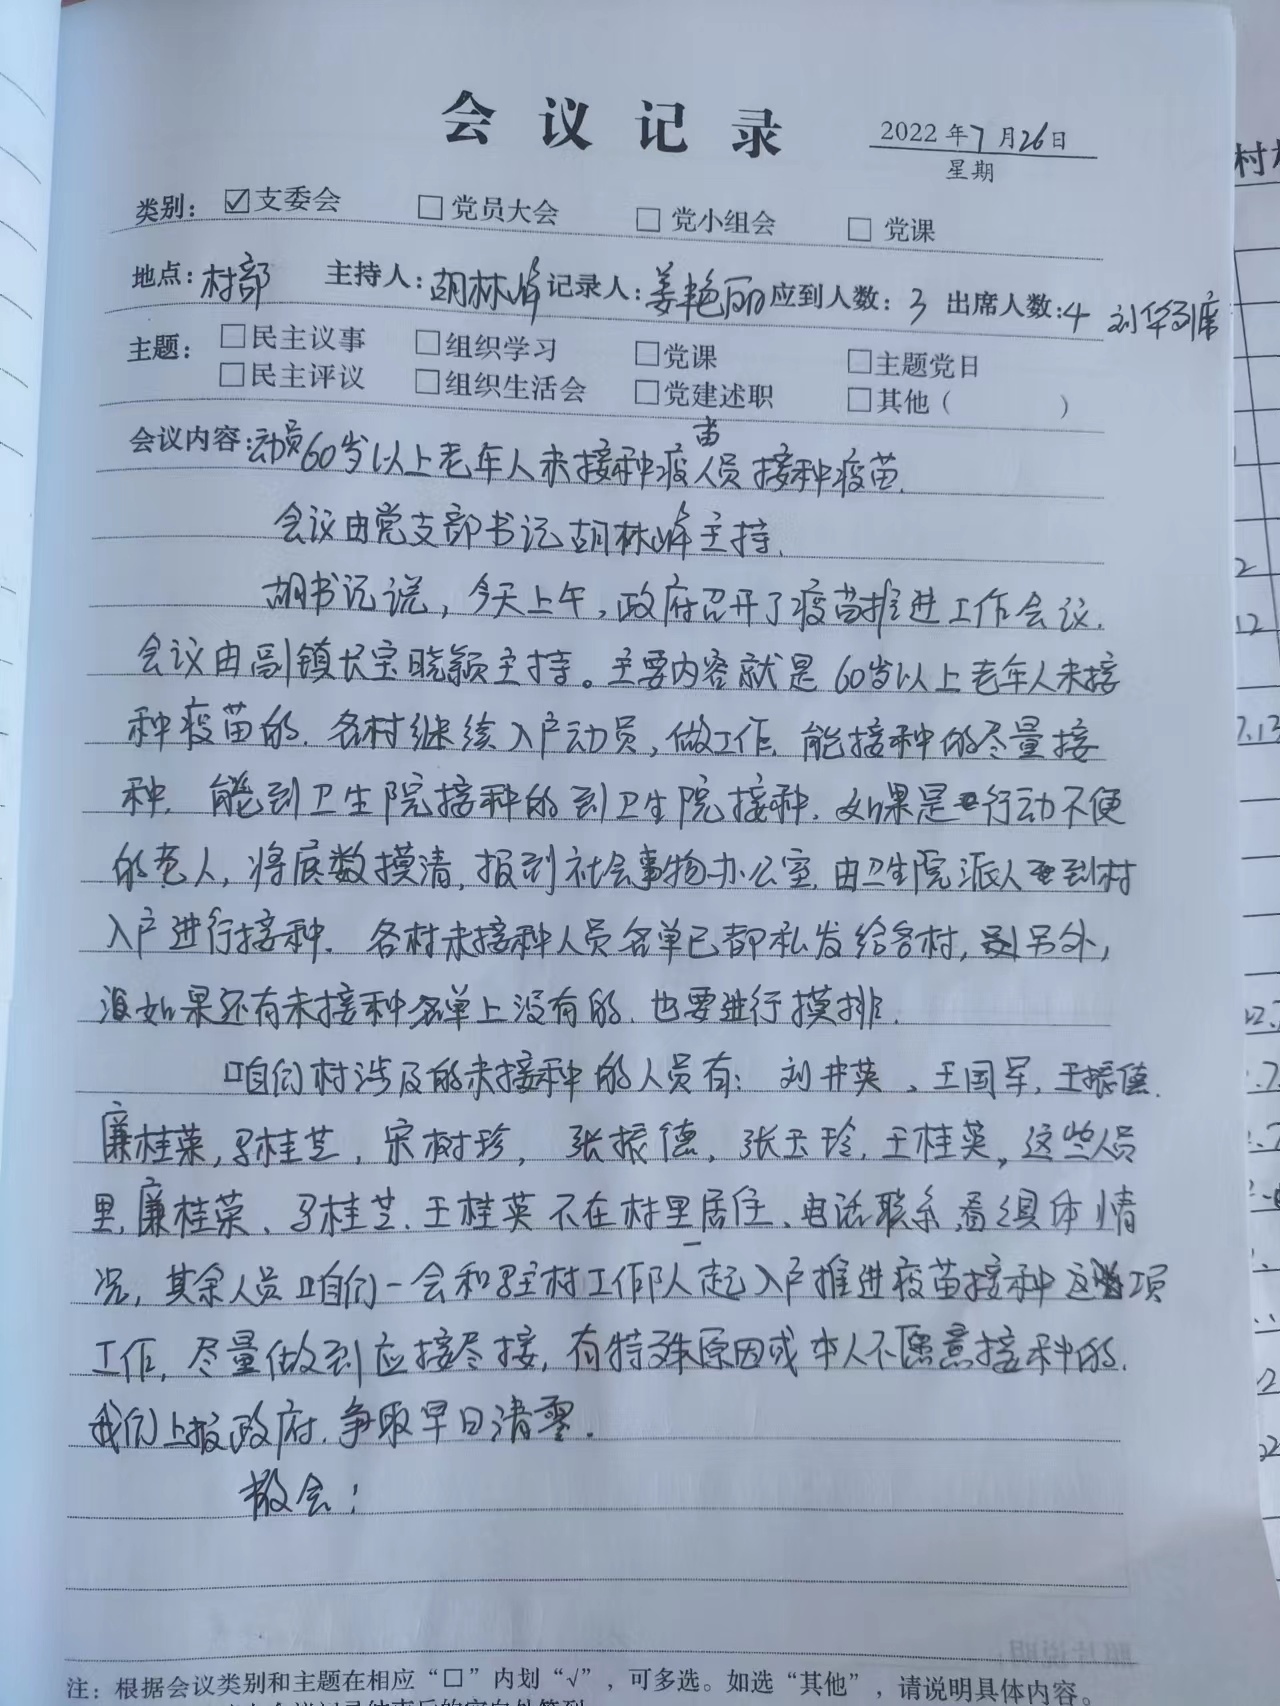 会议记录
2022年7月26日
星期
类别：☑支委会 □党员大会 □党小组会 □党课
地点：村部 主持人：胡林峰 记录人：姜艳丽 应到人数：3 出席人数：4 刘华列席
主题：□民主议事 □组织学习 □党课 □主题党日
□民主评议 □组织生活会 □党建述职 □其他（ ）
会议内容：动员60岁以上老年人未接种疫苗人员接种疫苗.
会议由党支部书记胡林峰主持.
胡书记说，今天上午，政府召开了疫苗推进工作会议.
会议由副镇长宝晓颖主持。主要内容就是60岁以上老年人未接
种疫苗的.各村继续入户动员，做工作.能接种的尽量接
种.能到卫生院接种的到卫生院接种.如果是行动不便
的老人，将底数摸清，报到社会事物办公室.由卫生院派人到村
入户进行接种.各村未接种人员名单已都私发给各村，另外，
如果还有未接种名单上没有的.也要进行摸排.
咱们村涉及的未接种的人员有：刘井英、王国军，王振德.
廉桂荣，马桂芝，宋树珍，张振德，张玉玲，王桂英，这些人员
里，廉桂荣、马桂芝.王桂英不在村里居住、电话联系，看具体情
况，其余人员咱们一会和驻村工作队一起入户推进疫苗接种这项
工作，尽量做到应接尽接，有特殊原因或本人不愿意接种的.
我们上报政府.争取早日清零.
散会！
注：根据会议类别和主题在相应“□”内划“√”，可多选。如选“其他”，请说明具体内容。